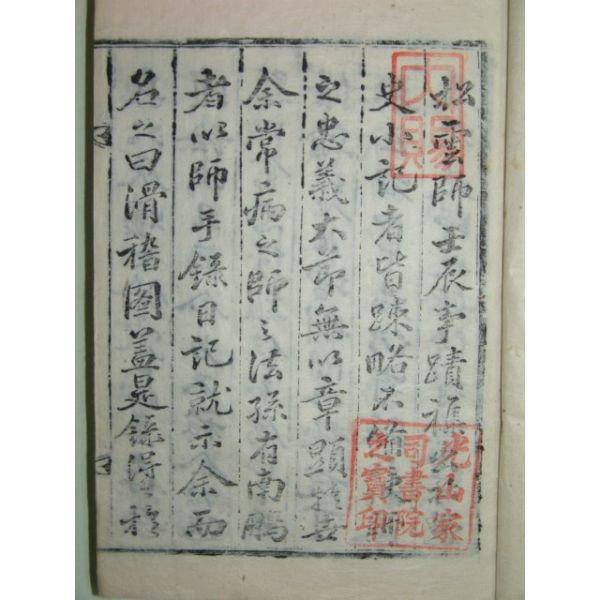 松雲師壬辰事蹟
史小記者皆踈略不備使師
之忠義大節無以章顯於世
余常病之師之法孫有南鵬
者以師手錄日記就示余而
名之曰滑稽圖盖是錄得於
光山家
司書院
之寶印